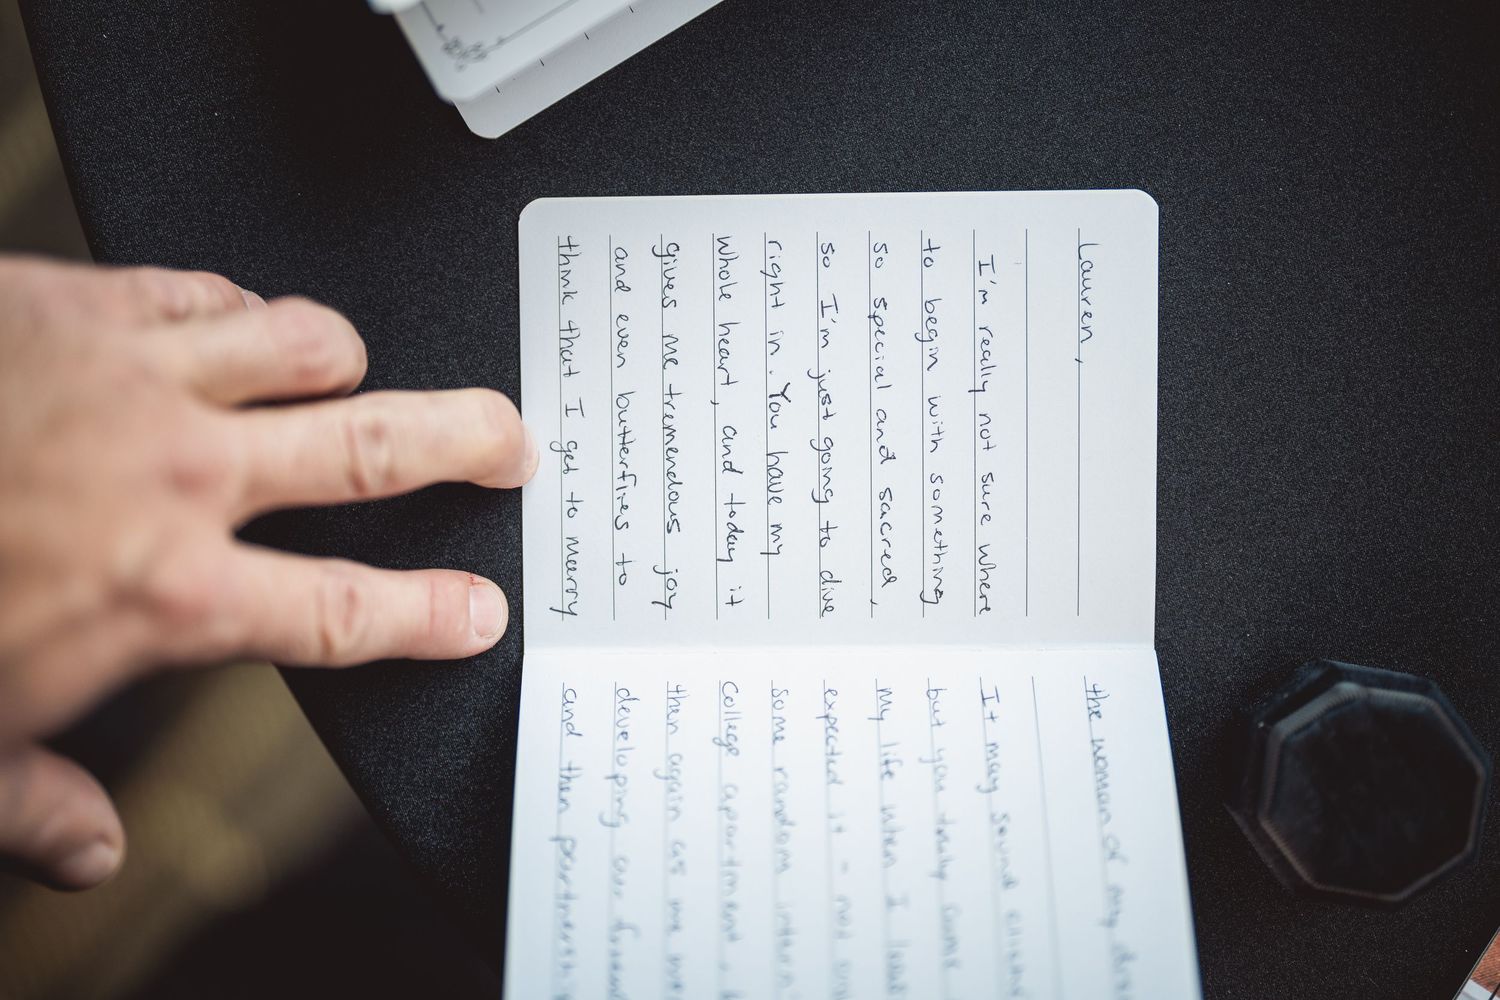 Lauren,
I'm really not sure where
to begin with something
so special and sacred,
so I'm just going to dive
right in. You have my
whole heart, and today it
gives me tremendous joy
and even butterflies to
think that I get to marry
the woman of my
It may sound
but you totally came
my life when I
expected it - not
some random
college apartment,
then again as we
developing our
and then